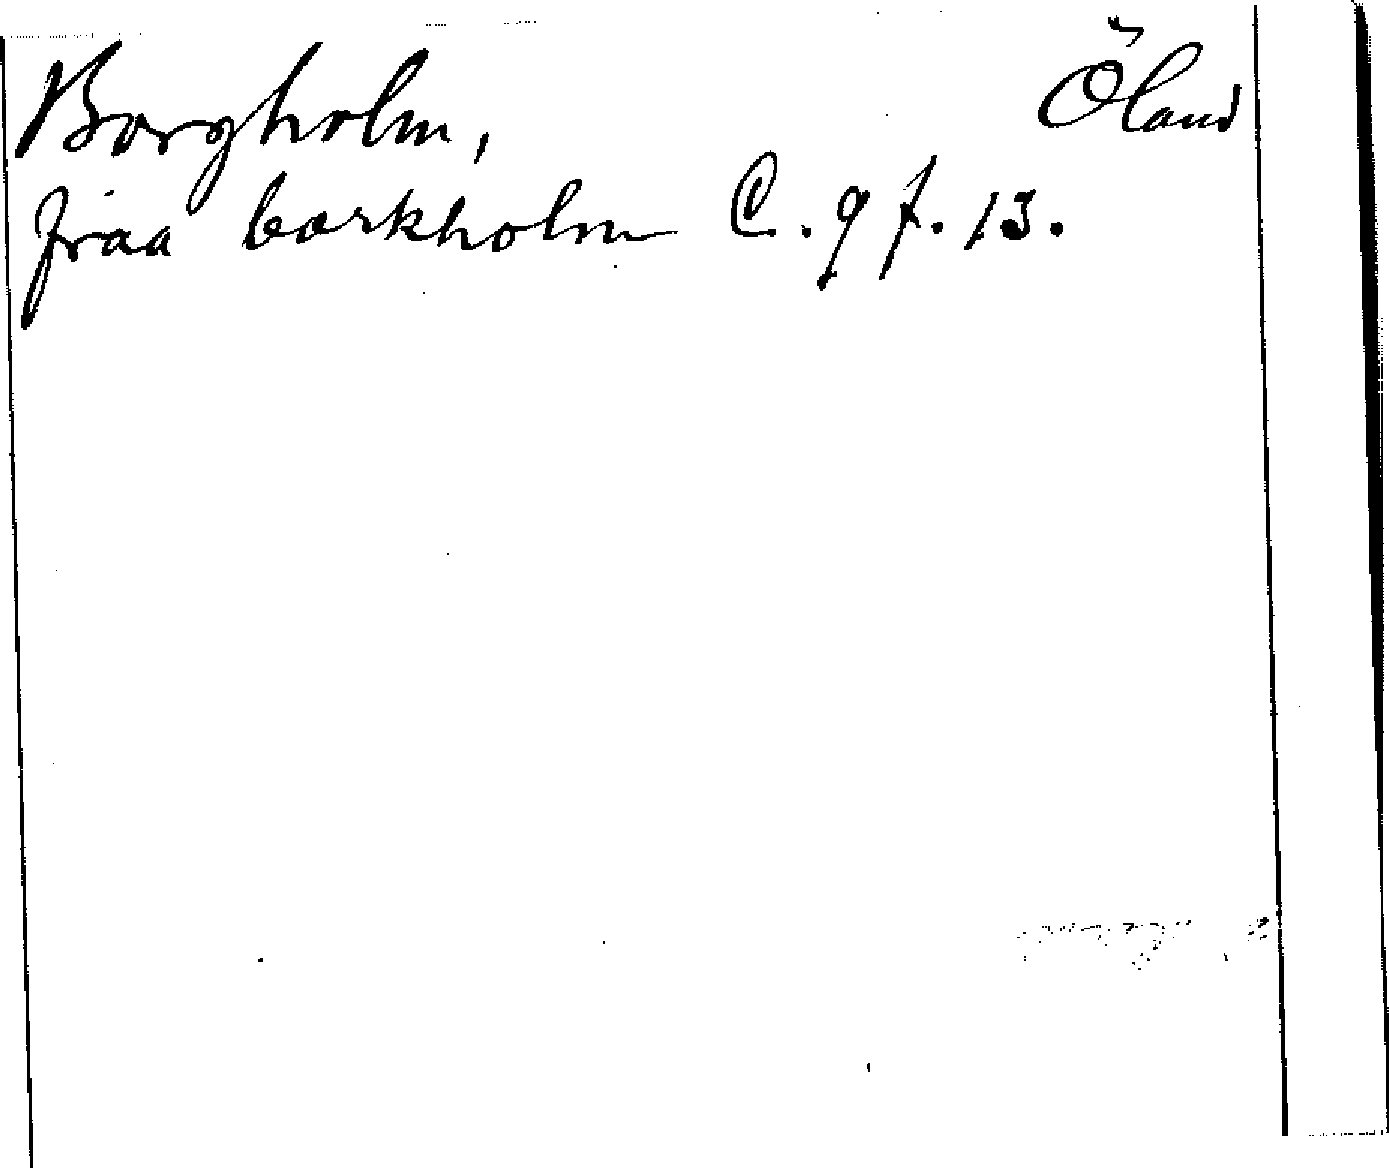 Borgholm, Öland
fraa borkholm C. 9 f. 13.